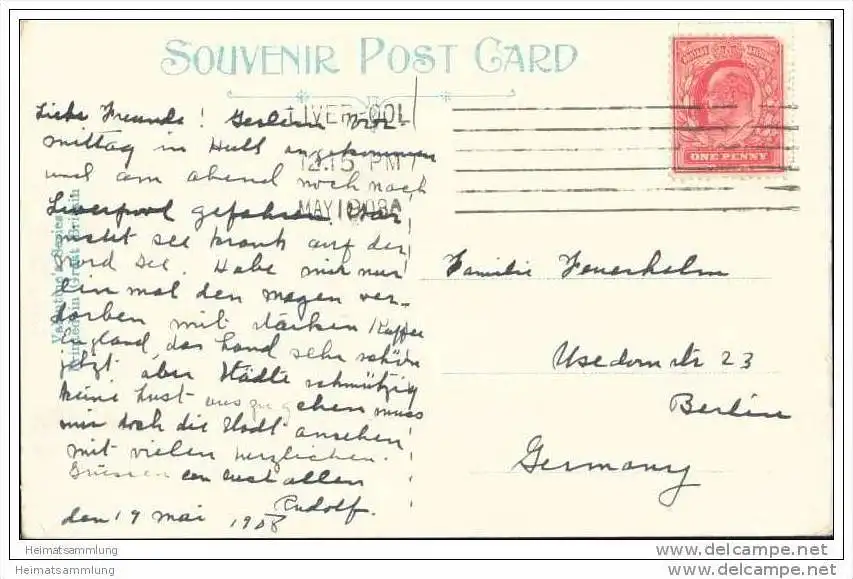 SOUVENIR POST CARD
LIVERPOOL
12.15 PM
MAY 19 08
ONE PENNY
Valentine's Series
Printed in Great Britain
Liebe Freunde! Gestern Vor-
mittag in Hull angekommen
und am abend noch nach
Liverpool gefahren. War
nicht see krank auf der
Nord See. Habe mir nur
ein mal den magen ver-
dorben mit starken Kaffee
England das Land sehr schön
jetzt, aber Städte schmützig
keine Lust auszugehen muss
mir doch die Stadt ansehen
mit vielen herzlichen
Grüssen an euch allen
Rudolf.
den 19 Mai 1908
Familie Feuerhelm
Usedom str 23
Berlin
Germany
Heimatsammlung
www.delcampe.net
Heimatsammlung
www.delcampe.net